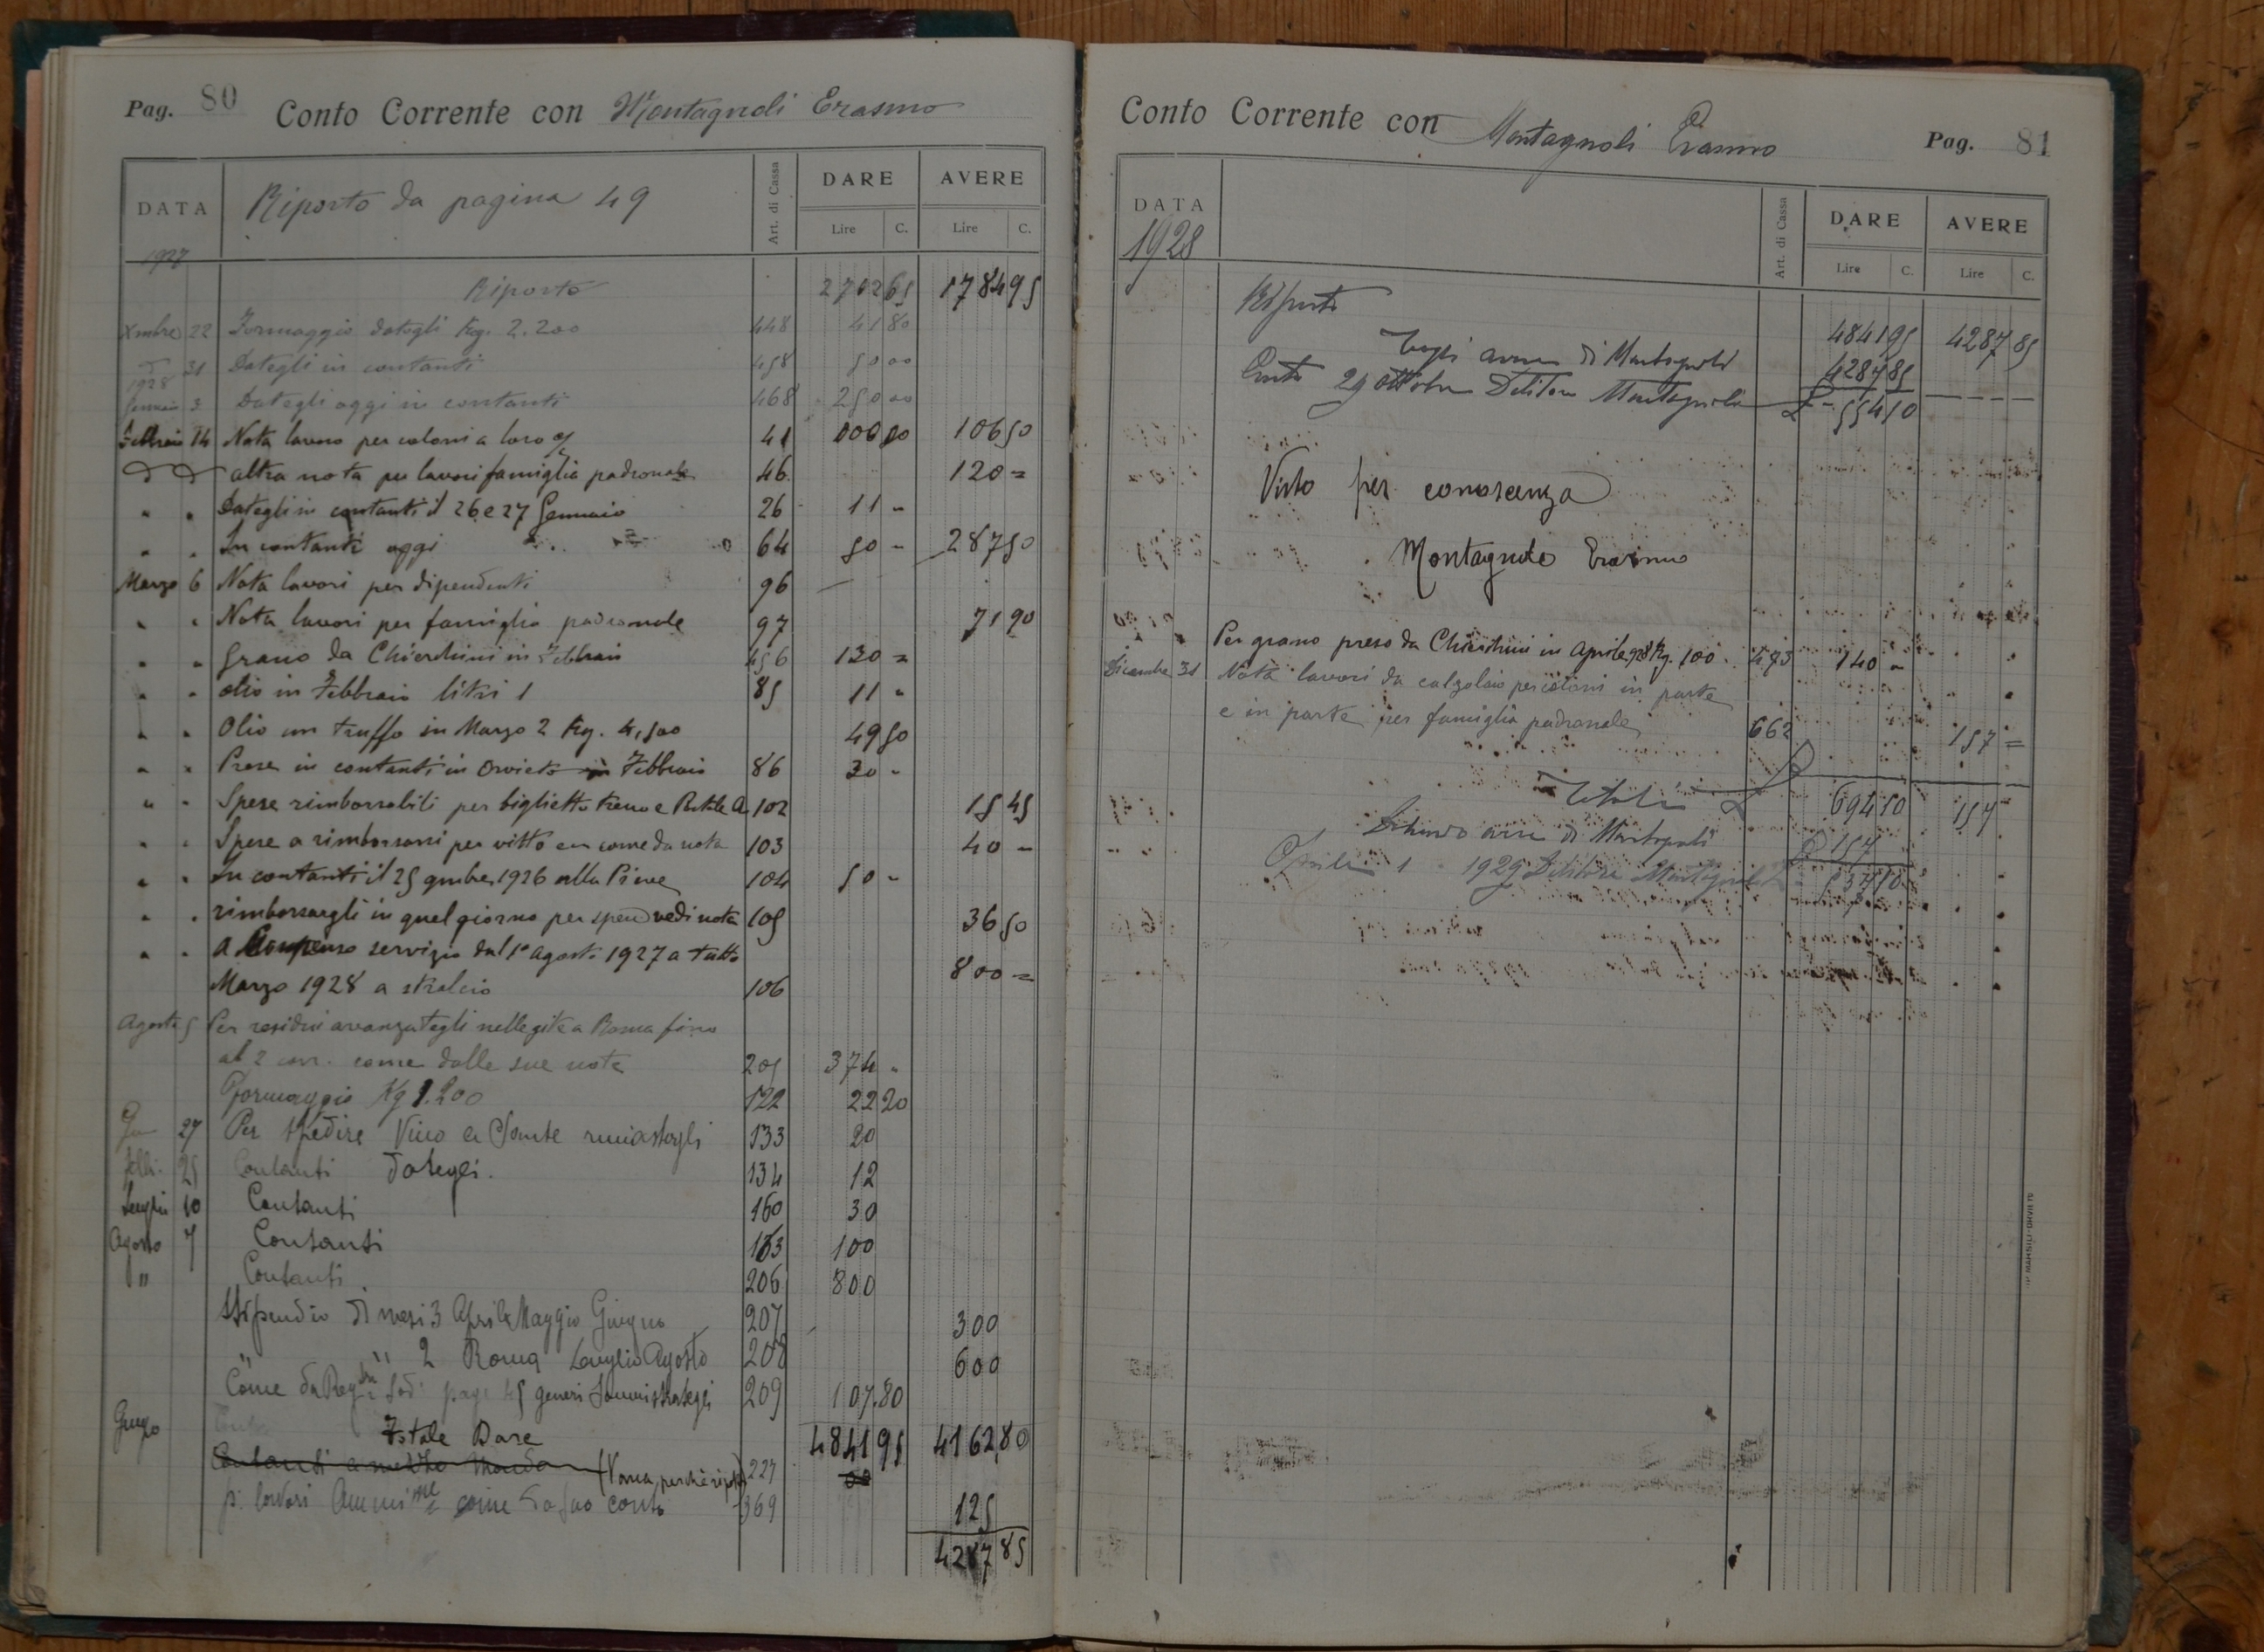 Pag. 80 Conto Corrente con Montagnoli Erasmo
DATA Riporto da pagina 49 Art. di Cassa DARE AVERE
Lire C. Lire C.
1927
Riporto 2702 65 1784 95
Xmbre 22 Formaggio datogli Kg. 2.200 448 41 80
" 31 Dategli in contanti 458 50 00
1928
Gennaio 3 Dategli oggi in contanti 468 250 00
Febbraio 14 Nota lavoro per coloni a loro c/ 41 000 00 106 50
altra nota per lavori famiglia padronale 46 120 =
" " Dategli in contanti il 26 e 27 Gennaio 26 11 "
" " In contanti oggi 64 50 - 287 50
Marzo 6 Nota lavori per dipendenti 96 —
" " Nota lavori per famiglia padronale 97 71 90
" " Grano da Chierchini in Febbraio 456 130 =
" " olio in Febbraio litri 1 85 11 "
" " Olio un truffo in Marzo 2 Kg. 4,500 49 50
" " Prese in contanti in Orvieto in Febbraio 86 30 -
" " Spese rimborsabili per biglietto treno e 102 15 45
" " Spese a rimborsarsi per vitto come da nota 103 40 -
" " In contanti il 25 9mbre 1926 alla Pieve 104 50 -
" " rimborsargli in quel giorno per spese vedi nota 105 36 50
" " a Compenso servizio dal 1° Agosto 1927 a tutto
Marzo 1928 a stralcio 106 800 =
Agosto 5 Per residui avanzategli nelle gite a Roma fino
al 2 corr. come dalle sue note 205 374 "
Formaggio Kg 1.200 122 22 20
27 Per spedire Vino a Conte rimastogli 133 20
25 Contanti dategli. 134 12
Luglio 10 Contanti 160 30
Agosto 7 Contanti 163 100
" Contanti 206 800
Stipendio di mesi 3 Aprile Maggio Giugno 207 300
" " 2 Roma Luglio Agosto 208 600
Come da pag. 45 generi somministrategli 209 107.80
Totale Dare 4841 95 4162,80
Contanti a mezzo 227
p. lavori come da suo conto 369 125
4287 85
Conto Corrente con Montagnoli Erasmo Pag. 81
DATA Art. di Cassa DARE AVERE
1928 Lire C. Lire C.
Riporto 4841 95 4287 85
Togli avere di Montagnoli 4287 85
29 Ottobre Debitore Montagnoli £ - 554 10
Visto per conoscenza
Montagnoli Erasmo
Per grano preso da Chierchini in Aprile 928 Kg. 100. 473 140 "
Dicembre 31 Nota lavori da calzolaio per coloni in parte
e in parte per famiglia padronale 662 157 =
Totale £ 694 10 157
avere di Montagnoli £ 157
Aprile 1 1929 Debitore Montagnoli 537 10